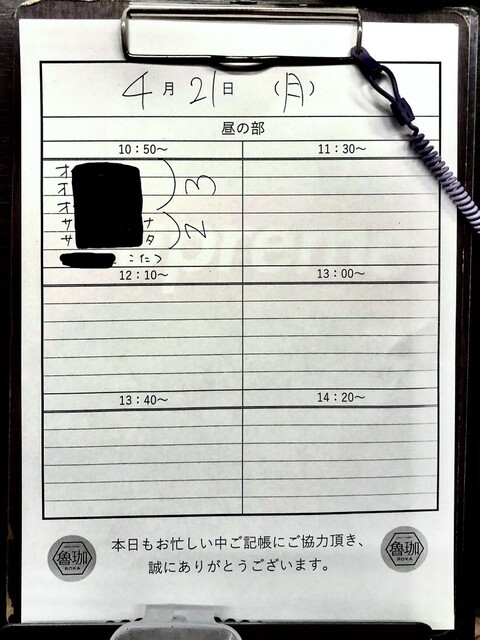 4月21日 (月)
昼の部
10:50～
11:30～
オ
オ
オ
3
サ ナ
サ タ
2
こたつ
12:10～
13:00～
13:40～
14:20～
本日もお忙しい中ご記帳にご協力頂き、
誠にありがとうございます。
魯珈
ROKA
魯珈
ROKA